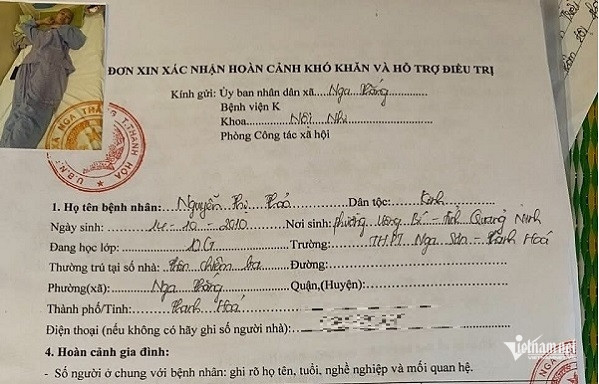 ĐƠN XIN XÁC NHẬN HOÀN CẢNH KHÓ KHĂN VÀ HỖ TRỢ ĐIỀU TRỊ
Kính gửi: Ủy ban nhân dân xã Nga Thắng
Bệnh viện K
Khoa Nội Nhi
Phòng Công tác xã hội
U.B.N.D XÃ NGA THẮNG T.THANH HÓA
1. Họ tên bệnh nhân: Nguyễn Thị Thảo Dân tộc: Kinh
Ngày sinh: 14-10-2010 Nơi sinh: phường Uông Bí - tỉnh Quảng Ninh
Đang học lớp: 10G Trường: THPT Nga Sơn - Thanh Hoá
Thường trú tại số nhà: thôn chiệm ba Đường:
Phường(xã): Nga Thắng Quận,(Huyện):
Thành phố/Tỉnh: Thanh Hoá
Điện thoại (nếu không có hãy ghi số người nhà):
4. Hoàn cảnh gia đình:
- Số người ở chung với bệnh nhân: ghi rõ họ tên, tuổi, nghề nghiệp và mối quan hệ.
vietnamnet